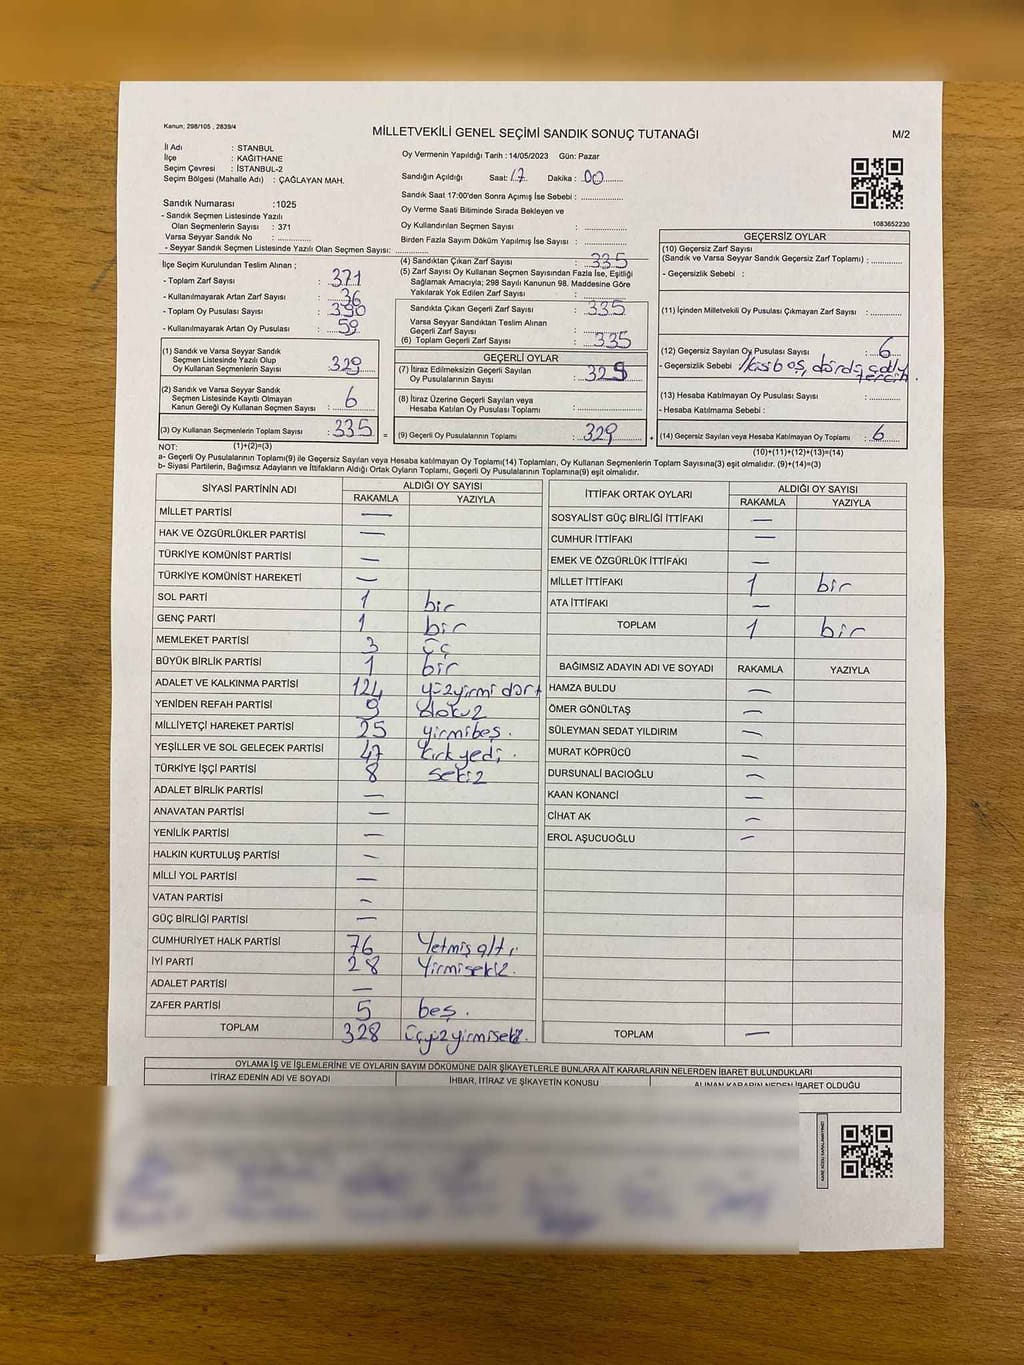 Kanun; 298/105 , 2839/4
MİLLETVEKİLİ GENEL SEÇİMİ SANDIK SONUÇ TUTANAĞI
M/2
İl Adı : STANBUL
İlçe : KAĞITHANE
Seçim Çevresi : İSTANBUL-2
Seçim Bölgesi (Mahalle Adı) : ÇAĞLAYAN MAH.
Oy Vermenin Yapıldığı Tarih : 14/05/2023 Gün: Pazar
Sandığın Açıldığı Saat: 17 Dakika : 00
Sandık Saat 17:00'den Sonra Açımış İse Sebebi :
Oy Verme Saati Bitiminde Sırada Bekleyen ve
Oy Kullandırılan Seçmen Sayısı :
Birden Fazla Sayım Döküm Yapılmış İse Sayısı :
1083652230
Sandık Numarası :1025
- Sandık Seçmen Listesinde Yazılı
Olan Seçmenlerin Sayısı : 371
Varsa Seyyar Sandık No :
- Seyyar Sandık Seçmen Listesinde Yazılı Olan Seçmen Sayısı:
İlçe Seçim Kurulundan Teslim Alınan ;
- Toplam Zarf Sayısı : 371
- Kullanılmayarak Artan Zarf Sayısı : 36
- Toplam Oy Pusulası Sayısı : 390
- Kullanılmayarak Artan Oy Pusulası : 59
(1) Sandık ve Varsa Seyyar Sandık
Seçmen Listesinde Yazılı Olup
Oy Kullanan Seçmenlerin Sayısı : 329
(2) Sandık ve Varsa Seyyar Sandık
Seçmen Listesinde Kayıtlı Olmayan
Kanun Gereği Oy Kullanan Seçmen Sayısı : 6
(3) Oy Kullanan Seçmenlerin Toplam Sayısı : 335 =
(1)+(2)=(3)
(4) Sandıktan Çıkan Zarf Sayısı : 335
(5) Zarf Sayısı Oy Kullanan Seçmen Sayısından Fazla İse, Eşitliği
Sağlamak Amacıyla; 298 Sayılı Kanunun 98. Maddesine Göre
Yakılarak Yok Edilen Zarf Sayısı :
Sandıkta Çıkan Geçerli Zarf Sayısı : 335
Varsa Seyyar Sandıktan Teslim Alınan
Geçerli Zarf Sayısı :
(6) Toplam Geçerli Zarf Sayısı : 335
GEÇERLİ OYLAR
(7) İtiraz Edilmeksizin Geçerli Sayılan
Oy Pusulalarının Sayısı : 329
(8) İtiraz Üzerine Geçerli Sayılan veya
Hesaba Katılan Oy Pusulası Toplamı :
(9) Geçerli Oy Pusulalarının Toplamı : 329 +
GEÇERSİZ OYLAR
(10) Geçersiz Zarf Sayısı
(Sandık ve Varsa Seyyar Sandık Geçersiz Zarf Toplamı) :
- Geçersizlik Sebebi :
(11) İçinden Milletvekili Oy Pusulası Çıkmayan Zarf Sayısı :
(12) Geçersiz Sayılan Oy Pusulası Sayısı : 6
- Geçersizlik Sebebi : ikisi boş, dördü çoklu
tercih.
(13) Hesaba Katılmayan Oy Pusulası Sayısı :
- Hesaba Katılmama Sebebi :
(14) Geçersiz Sayılan veya Hesaba Katılmayan Oy Toplamı : 6
(10)+(11)+(12)+(13)=(14)
NOT:
a- Geçerli Oy Pusulalarının Toplamı(9) ile Geçersiz Sayılan veya Hesaba Katılmayan Oy Toplamı(14) Toplamları, Oy Kullanan Seçmenlerin Toplam Sayısına(3) eşit olmalıdır. (9)+(14)=(3)
b- Siyasi Partilerin, Bağımsız Adayların ve İttifakların Aldığı Ortak Oyların Toplamı, Geçerli Oy Pusulalarının Toplamına(9) eşit olmalıdır.
SİYASİ PARTİNİN ADI ALDIĞI OY SAYISI
RAKAMLA YAZIYLA
MİLLET PARTİSİ —
HAK VE ÖZGÜRLÜKLER PARTİSİ —
TÜRKİYE KOMÜNİST PARTİSİ —
TÜRKİYE KOMÜNİST HAREKETİ —
SOL PARTİ 1 bir
GENÇ PARTİ 1 bir
MEMLEKET PARTİSİ 3 üç
BÜYÜK BİRLİK PARTİSİ 1 bir
ADALET VE KALKINMA PARTİSİ 124 yüzyirmi dört
YENİDEN REFAH PARTİSİ 9 dokuz
MİLLİYETÇİ HAREKET PARTİSİ 25 yirmibeş.
YEŞİLLER VE SOL GELECEK PARTİSİ 47 kırkyedi.
TÜRKİYE İŞÇİ PARTİSİ 8 sekiz
ADALET BİRLİK PARTİSİ —
ANAVATAN PARTİSİ —
YENİLİK PARTİSİ —
HALKIN KURTULUŞ PARTİSİ —
MİLLİ YOL PARTİSİ —
VATAN PARTİSİ —
GÜÇ BİRLİĞİ PARTİSİ —
CUMHURİYET HALK PARTİSİ 76 Yetmişaltı
İYİ PARTİ 28 Yirmisekiz.
ADALET PARTİSİ —
ZAFER PARTİSİ 5 beş.
TOPLAM 328 üçyüzyirmisekiz.
İTTİFAK ORTAK OYLARI ALDIĞI OY SAYISI
RAKAMLA YAZIYLA
SOSYALİST GÜÇ BİRLİĞİ İTTİFAKI —
CUMHUR İTTİFAKI —
EMEK VE ÖZGÜRLÜK İTTİFAKI —
MİLLET İTTİFAKI 1 bir
ATA İTTİFAKI —
TOPLAM 1 bir
BAĞIMSIZ ADAYIN ADI VE SOYADI RAKAMLA YAZIYLA
HAMZA BULDU —
ÖMER GÖNÜLTAŞ —
SÜLEYMAN SEDAT YILDIRIM —
MURAT KÖPRÜCÜ —
DURSUNALİ BACIOĞLU —
KAAN KONANCİ —
CİHAT AK —
EROL AŞUCUOĞLU —
TOPLAM —
OYLAMA İŞ VE İŞLEMLERİNE VE OYLARIN SAYIM DÖKÜMÜNE DAİR ŞİKAYETLERLE BUNLARA AİT KARARLARIN NELERDEN İBARET BULUNDUKLARI
İTİRAZ EDENİN ADI VE SOYADI İHBAR, İTİRAZ VE ŞİKAYETİN KONUSU ALINAN KARARIN NEDEN İBARET OLDUĞU